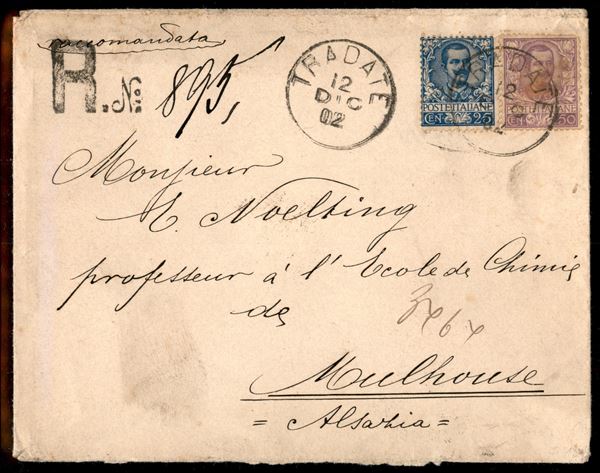 raccomandata
R. No 895,
TRADATE
12
DIC
02
POSTE ITALIANE
CEN 25
POSTE ITALIANE
CEN 50
TRADATE
12
02
Monsieur
E. Noelting
professeur à l'Ecole de Chimie
de
Mulhouse
= Alsazia =